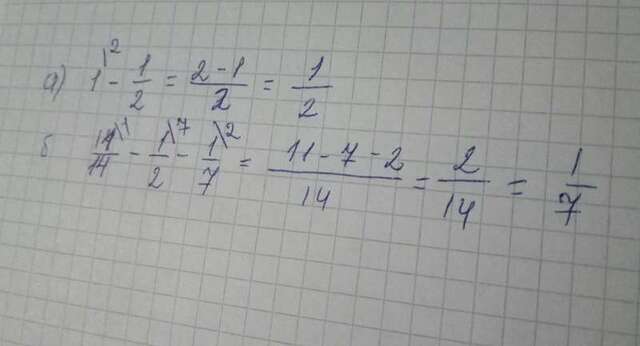 а) 1\2 - 1/2 = 2-1/2 = 1/2
б 11\1/14 - 1\7/2 - 1\2/7 = 11-7-2/14 = 2/14 = 1/7